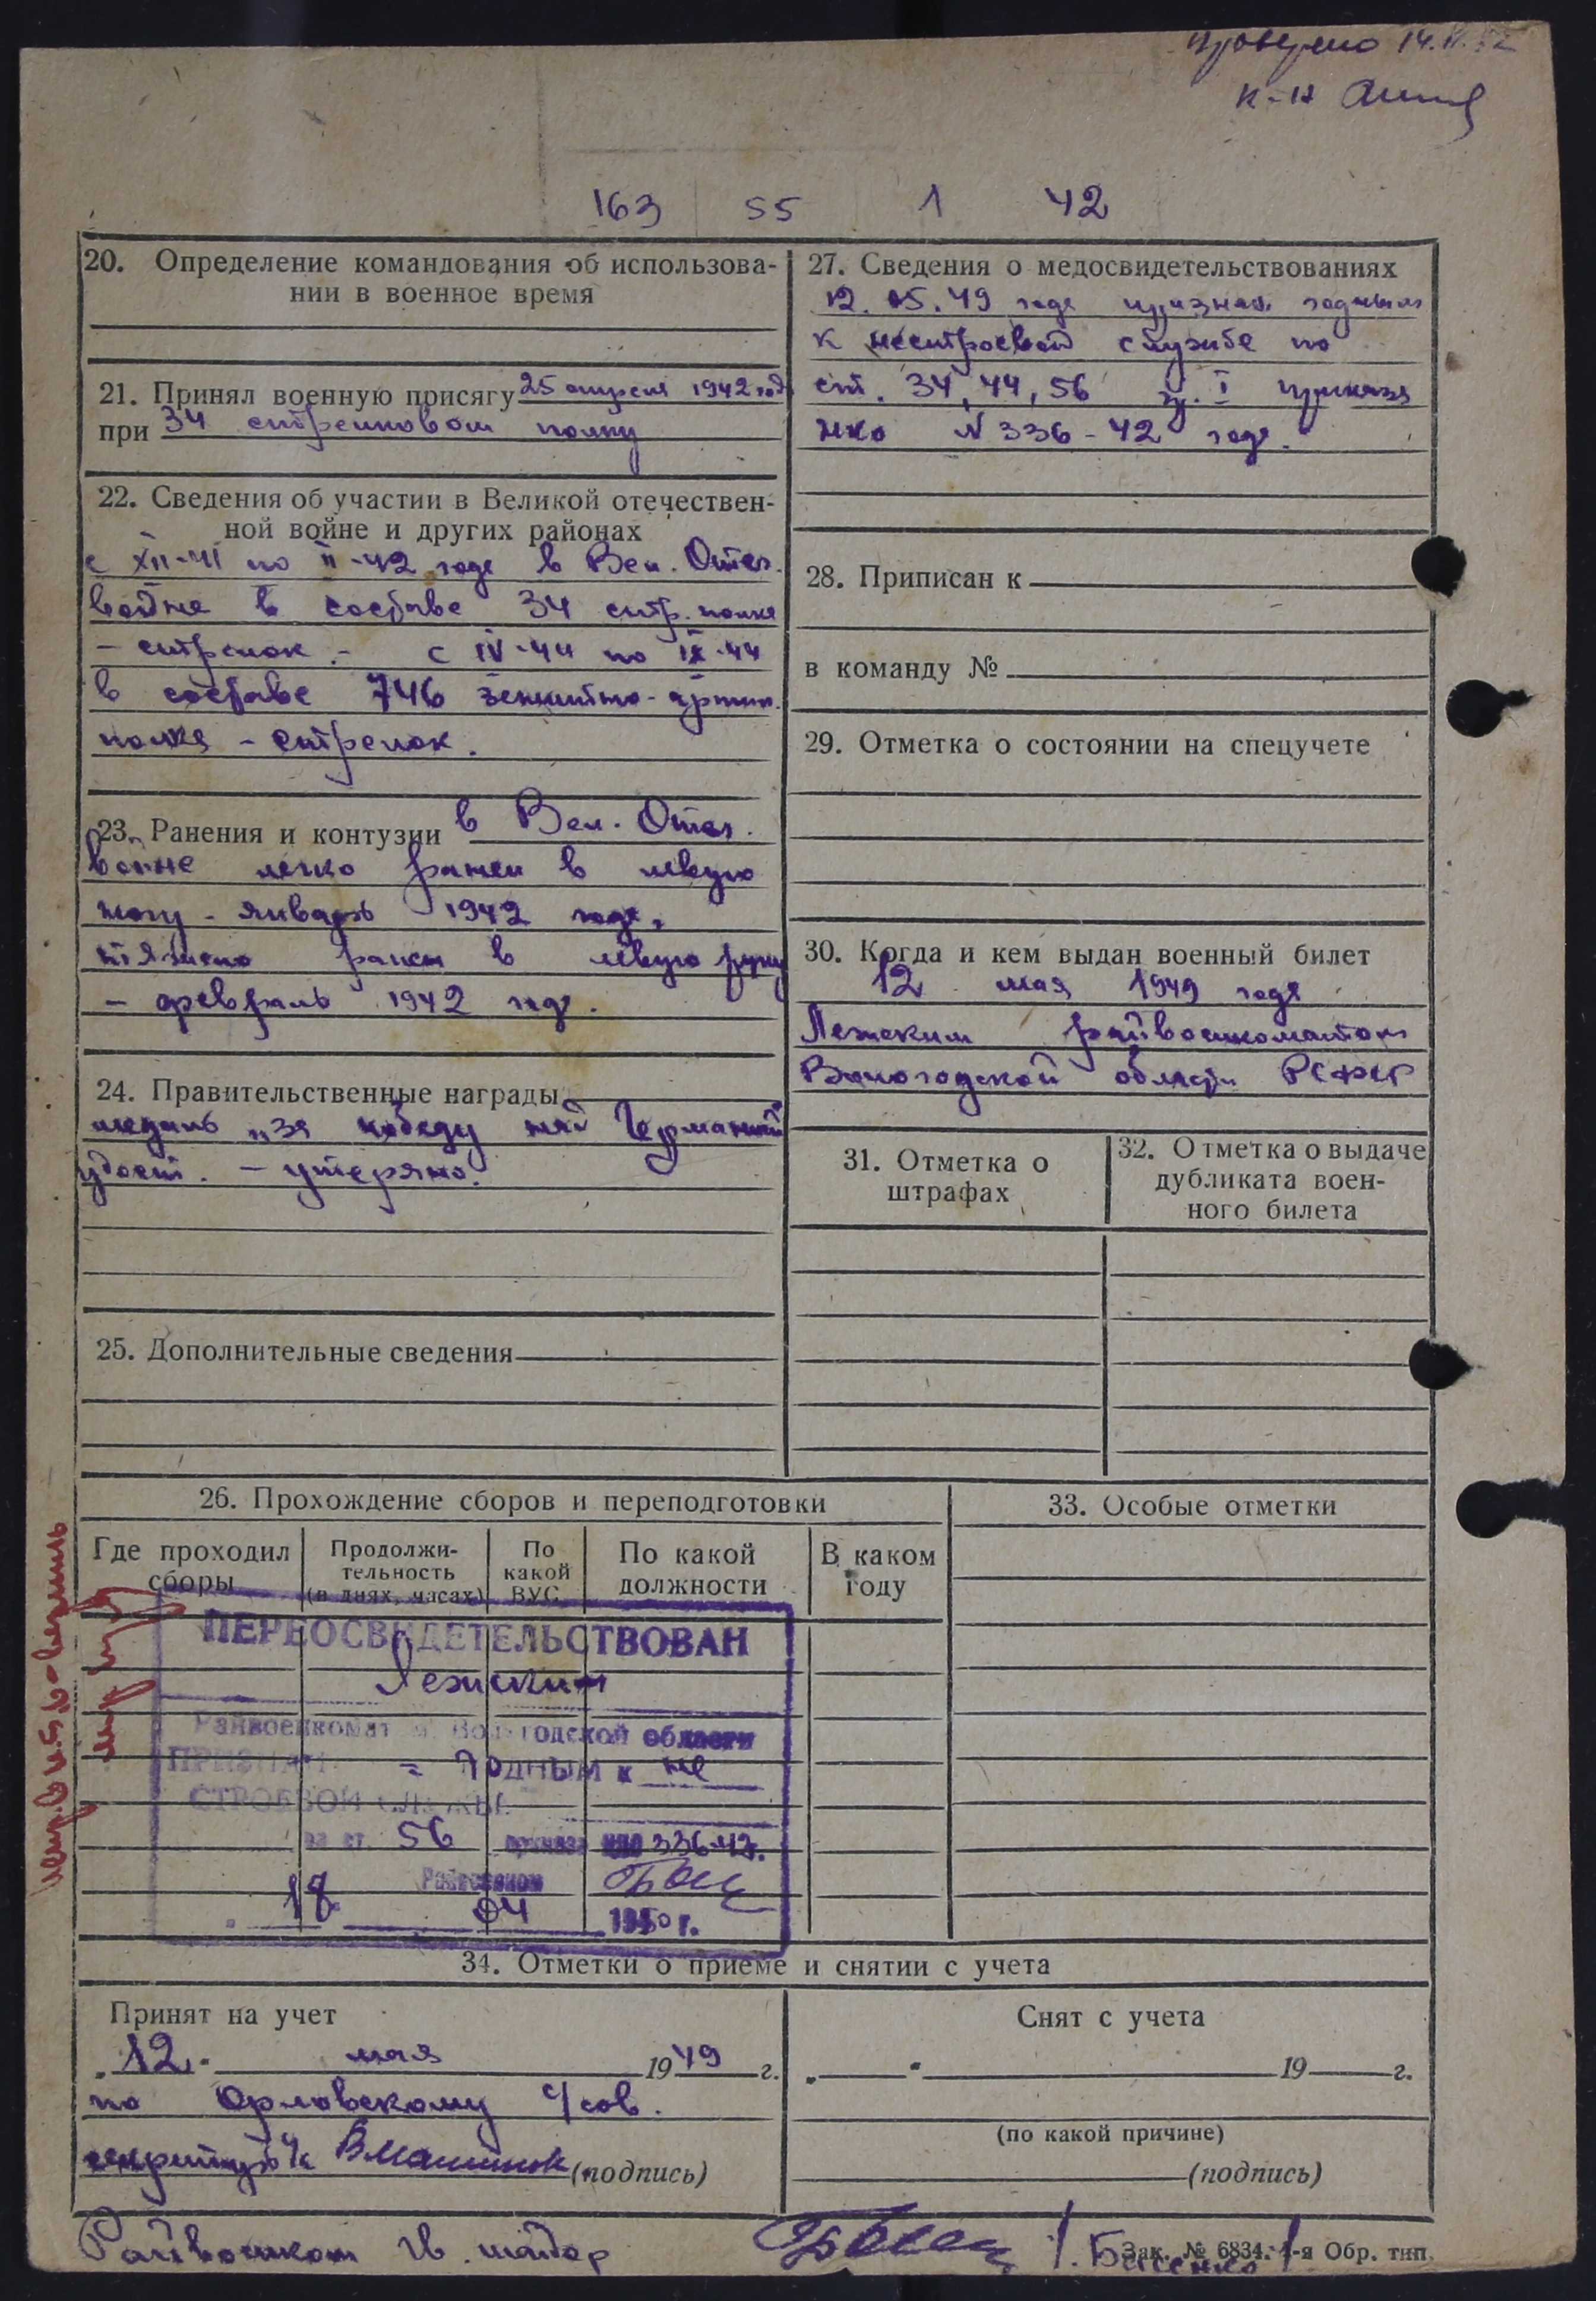 Проверено 14.
к-н
163 55 1 42
20. Определение командования об использова-
нии в военное время
21. Принял военную присягу 25 апреля 1942 год
при 34 стрелковом полку
22. Сведения об участии в Великой отечествен-
ной войне и других районах
с XII-41 по II-42 года в Вел. Отеч.
войне в составе 34 стр. полка
- стрелок - с IV-44 по IX-44
в составе 746 зенитно-артил.
полка - стрелок.
23. Ранения и контузии в Вел. Отеч.
войне легко ранен в левую
ногу - январь 1942 года,
тяжело ранен в левую руку
- февраль 1942 года.
24. Правительственные награды
медаль „за победу над Германией
удост. - утеряно.
25. Дополнительные сведения
27. Сведения о медосвидетельствованиях
12.05.49 года признан годным
к нестроевой службе по
ст. 34, 44, 56 гр. I приказа
НКО N 336-42 года.
28. Приписан к
в команду №
29. Отметка о состоянии на спецучете
30. Когда и кем выдан военный билет
12 мая 1949 года
Лежским райвоенкоматом
Вологодской области РСФСР
31. Отметка о
штрафах
32. Отметка о выдаче
дубликата воен-
ного билета
26. Прохождение сборов и переподготовки
Где проходил
сборы
Продолжи-
тельность
(в днях, часах)
По
какой
ВУС
По какой
должности
В каком
году
33. Особые отметки
ПЕРЕОСВИДЕТЕЛЬСТВОВАН
Лежским
Райвоенкомат Вологодской области
ПРИЗНАН = ГОДНЫМ к не
СТРОЕВОЙ СЛУЖБЕ
по ст. 56 приказа НКО 336-42г.
Райвоенком
18 04 1950 г.
34. Отметки о приеме и снятии с учета
Принят на учет
„12" мая 1949 г.
по Орловскому с/сов.
(подпись)
Снят с учета
„ " 19 г.
(по какой причине)
(подпись)
Райвоенком гв. майор /. Басенко /.
Зак. № 6834. 1-я Обр. тип.